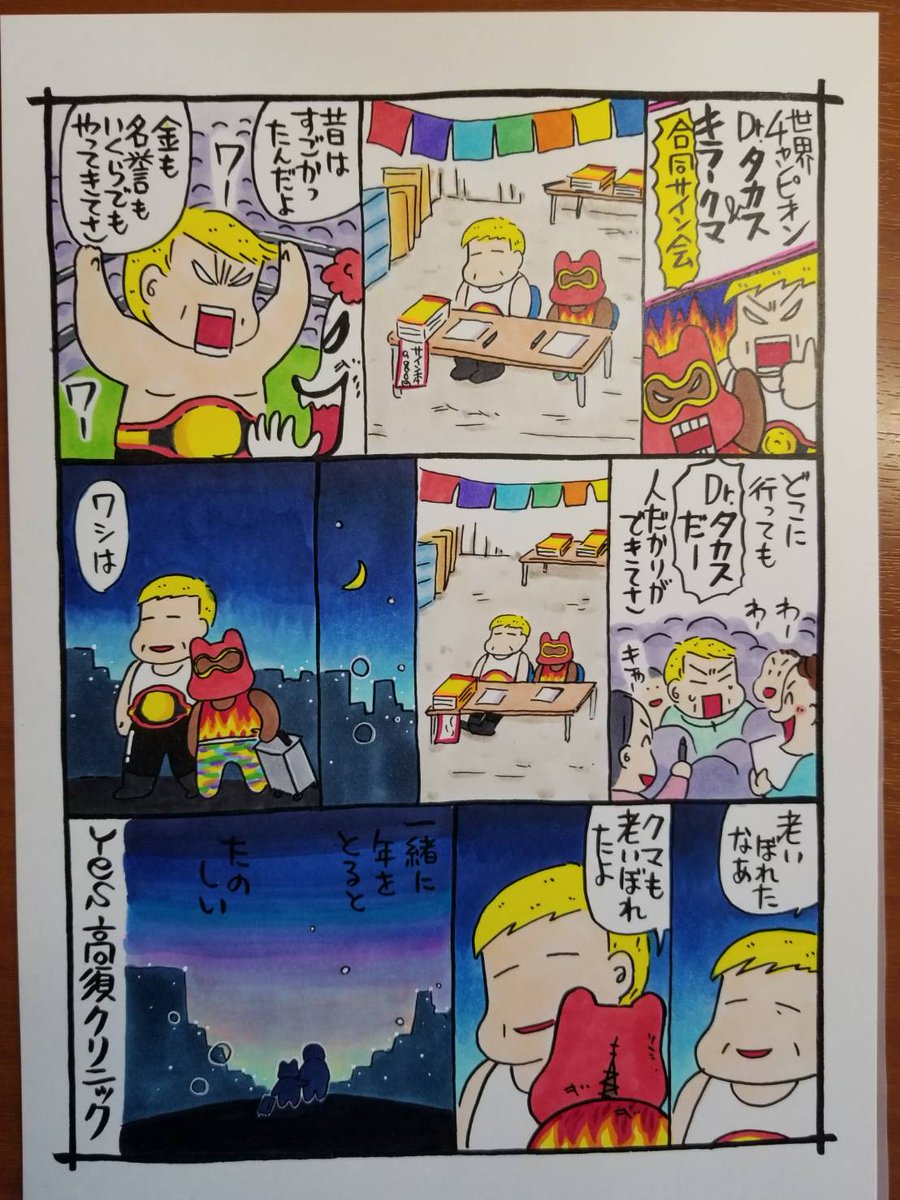 世界
チャンピオン
Dr.タカス
&
キラークマ
合同サイン会
サイン本
昔は
すごかっ
たんだよ
ワー
金も
名誉も
いくらでも
やってきてさ
ワー
どこに
行っても
Dr.タカス
だー
人だかりが
できてさ
わー
わー
キャー
ワシは
老い
ぼれた
なあ
クマも
老いぼれ
たよ
一緒に
年を
とると
たの
しい
Yes高須クリニック